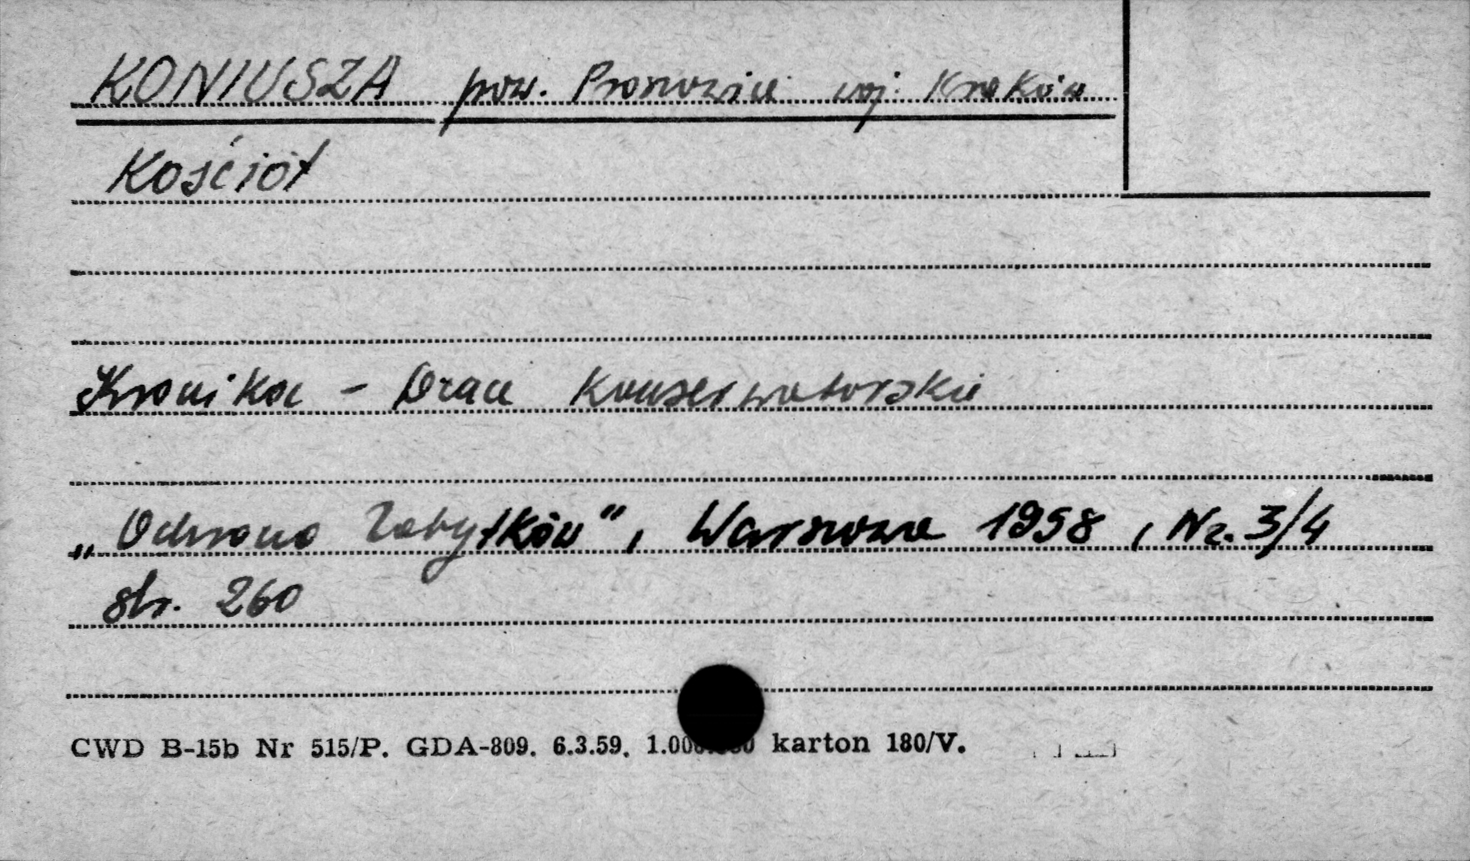 KONIUSZA pow. Proszowice woj. Kraków
Kościół
Kronika – Prace Konserwatorskie
„Ochrona Zabytków", Warszawa 1958, Nr. 3/4
str. 260
CWD B-15b Nr 515/P. GDA-809. 6.3.59. 1.000.000 karton 180/V.